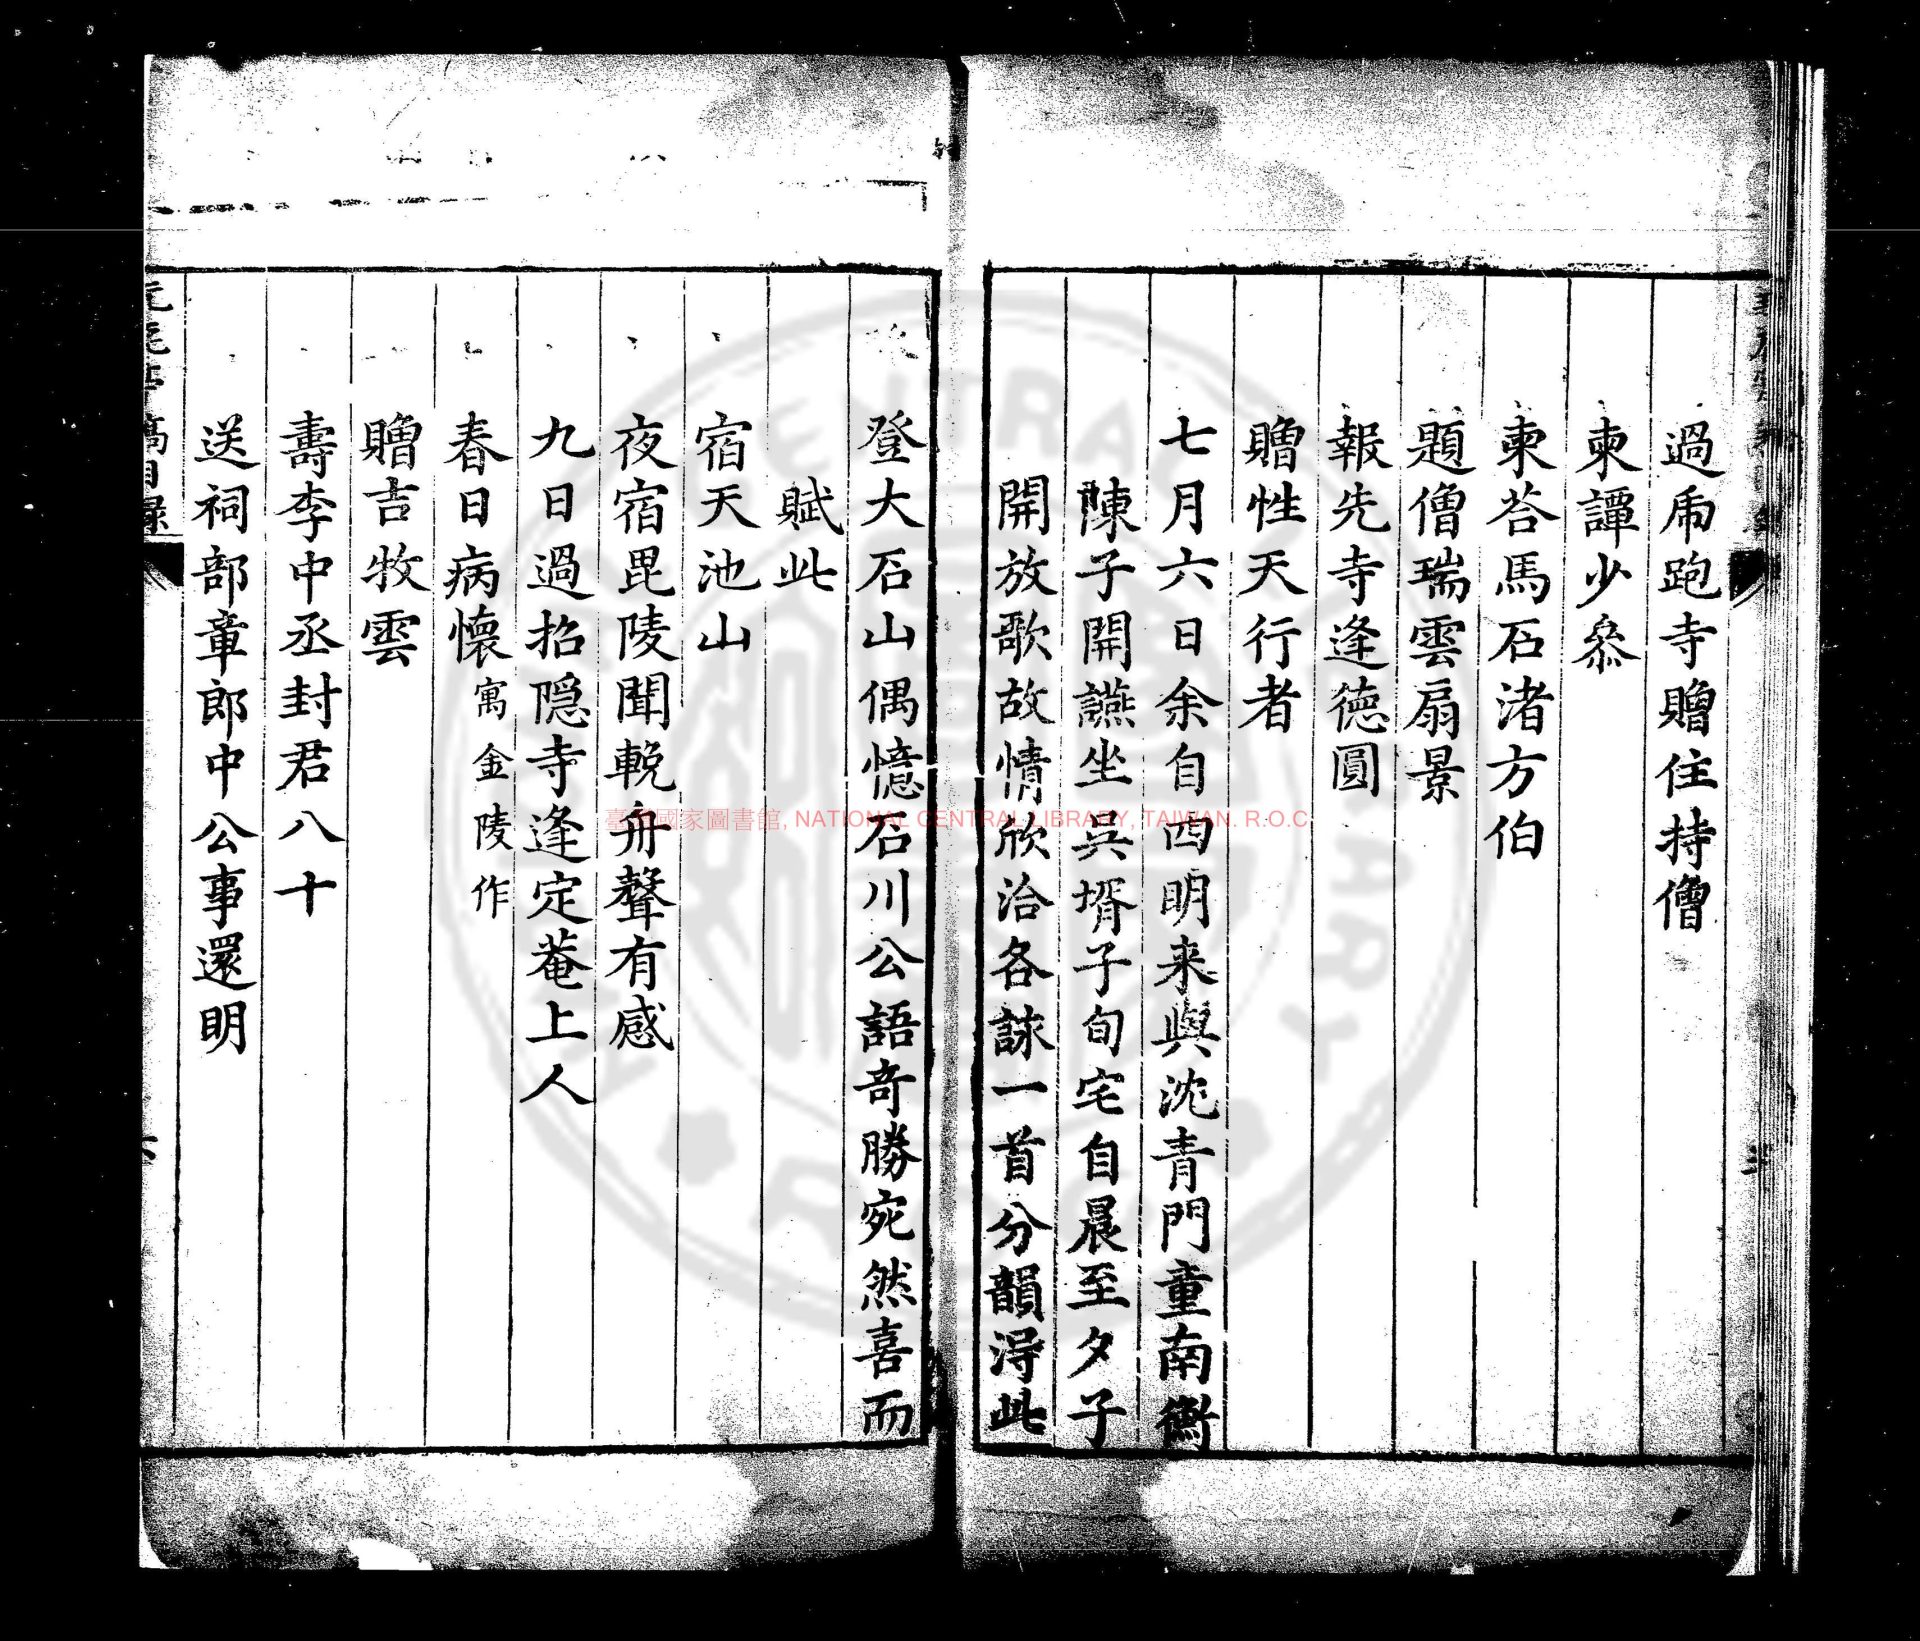 過虎跑寺贈住持僧
柬譚少叅
柬荅馬石渚方伯
題僧瑞雲扇景
報先寺逢德圓
贈性天行者
七月六日余自四明来與沈青門童南衡
陳子開讌坐吳壻子旬宅自晨至夕子
開放歌故情欣洽各詠一首分韻淂此
登大石山偶憶石川公語竒勝宛然喜而
賦此
宿天池山
夜宿毘陵聞輓舟聲有感
九日過招隠寺逢定菴上人
春日病懷寓金陵作
贈吉牧雲
壽李中丞封君八十
送祠部章郎中公事還明
稿目錄
臺灣國家圖書館, NATIONAL CENTRAL LIBRARY, TAIWAN. R.O.C